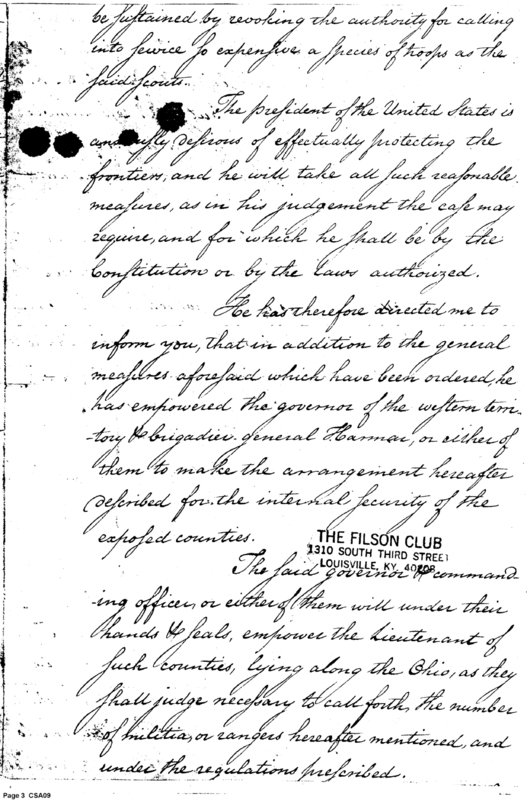 be sustained by revoking the authority for calling
into service so expensive a species of troops as the
said scouts.
The president of the United States is
anxiously desirous of effectually protecting the
frontiers, and he will take all such reasonable
measures, as in his judgement the case may
require, and for which he shall be by the
Constitution or by the laws authorized.
He has therefore directed me to
inform you, that in addition to the general
measures aforesaid which have been ordered, he
has empowered the governor of the western terri-
-tory & brigadier general Harmar, or either of
them to make the arrangement hereafter
described for the internal security of the
exposed counties.
THE FILSON CLUB
1310 SOUTH THIRD STREET
LOUISVILLE, KY. 40208
The said governor & command
-ing officer, or either of them will under their
hands & seals, empower the Lieutenant of
such counties, lying along the Ohio, as they
shall judge necessary to call forth, the number
of militia, or rangers hereafter mentioned, and
under the regulations prescribed.
Page 3 CSA09